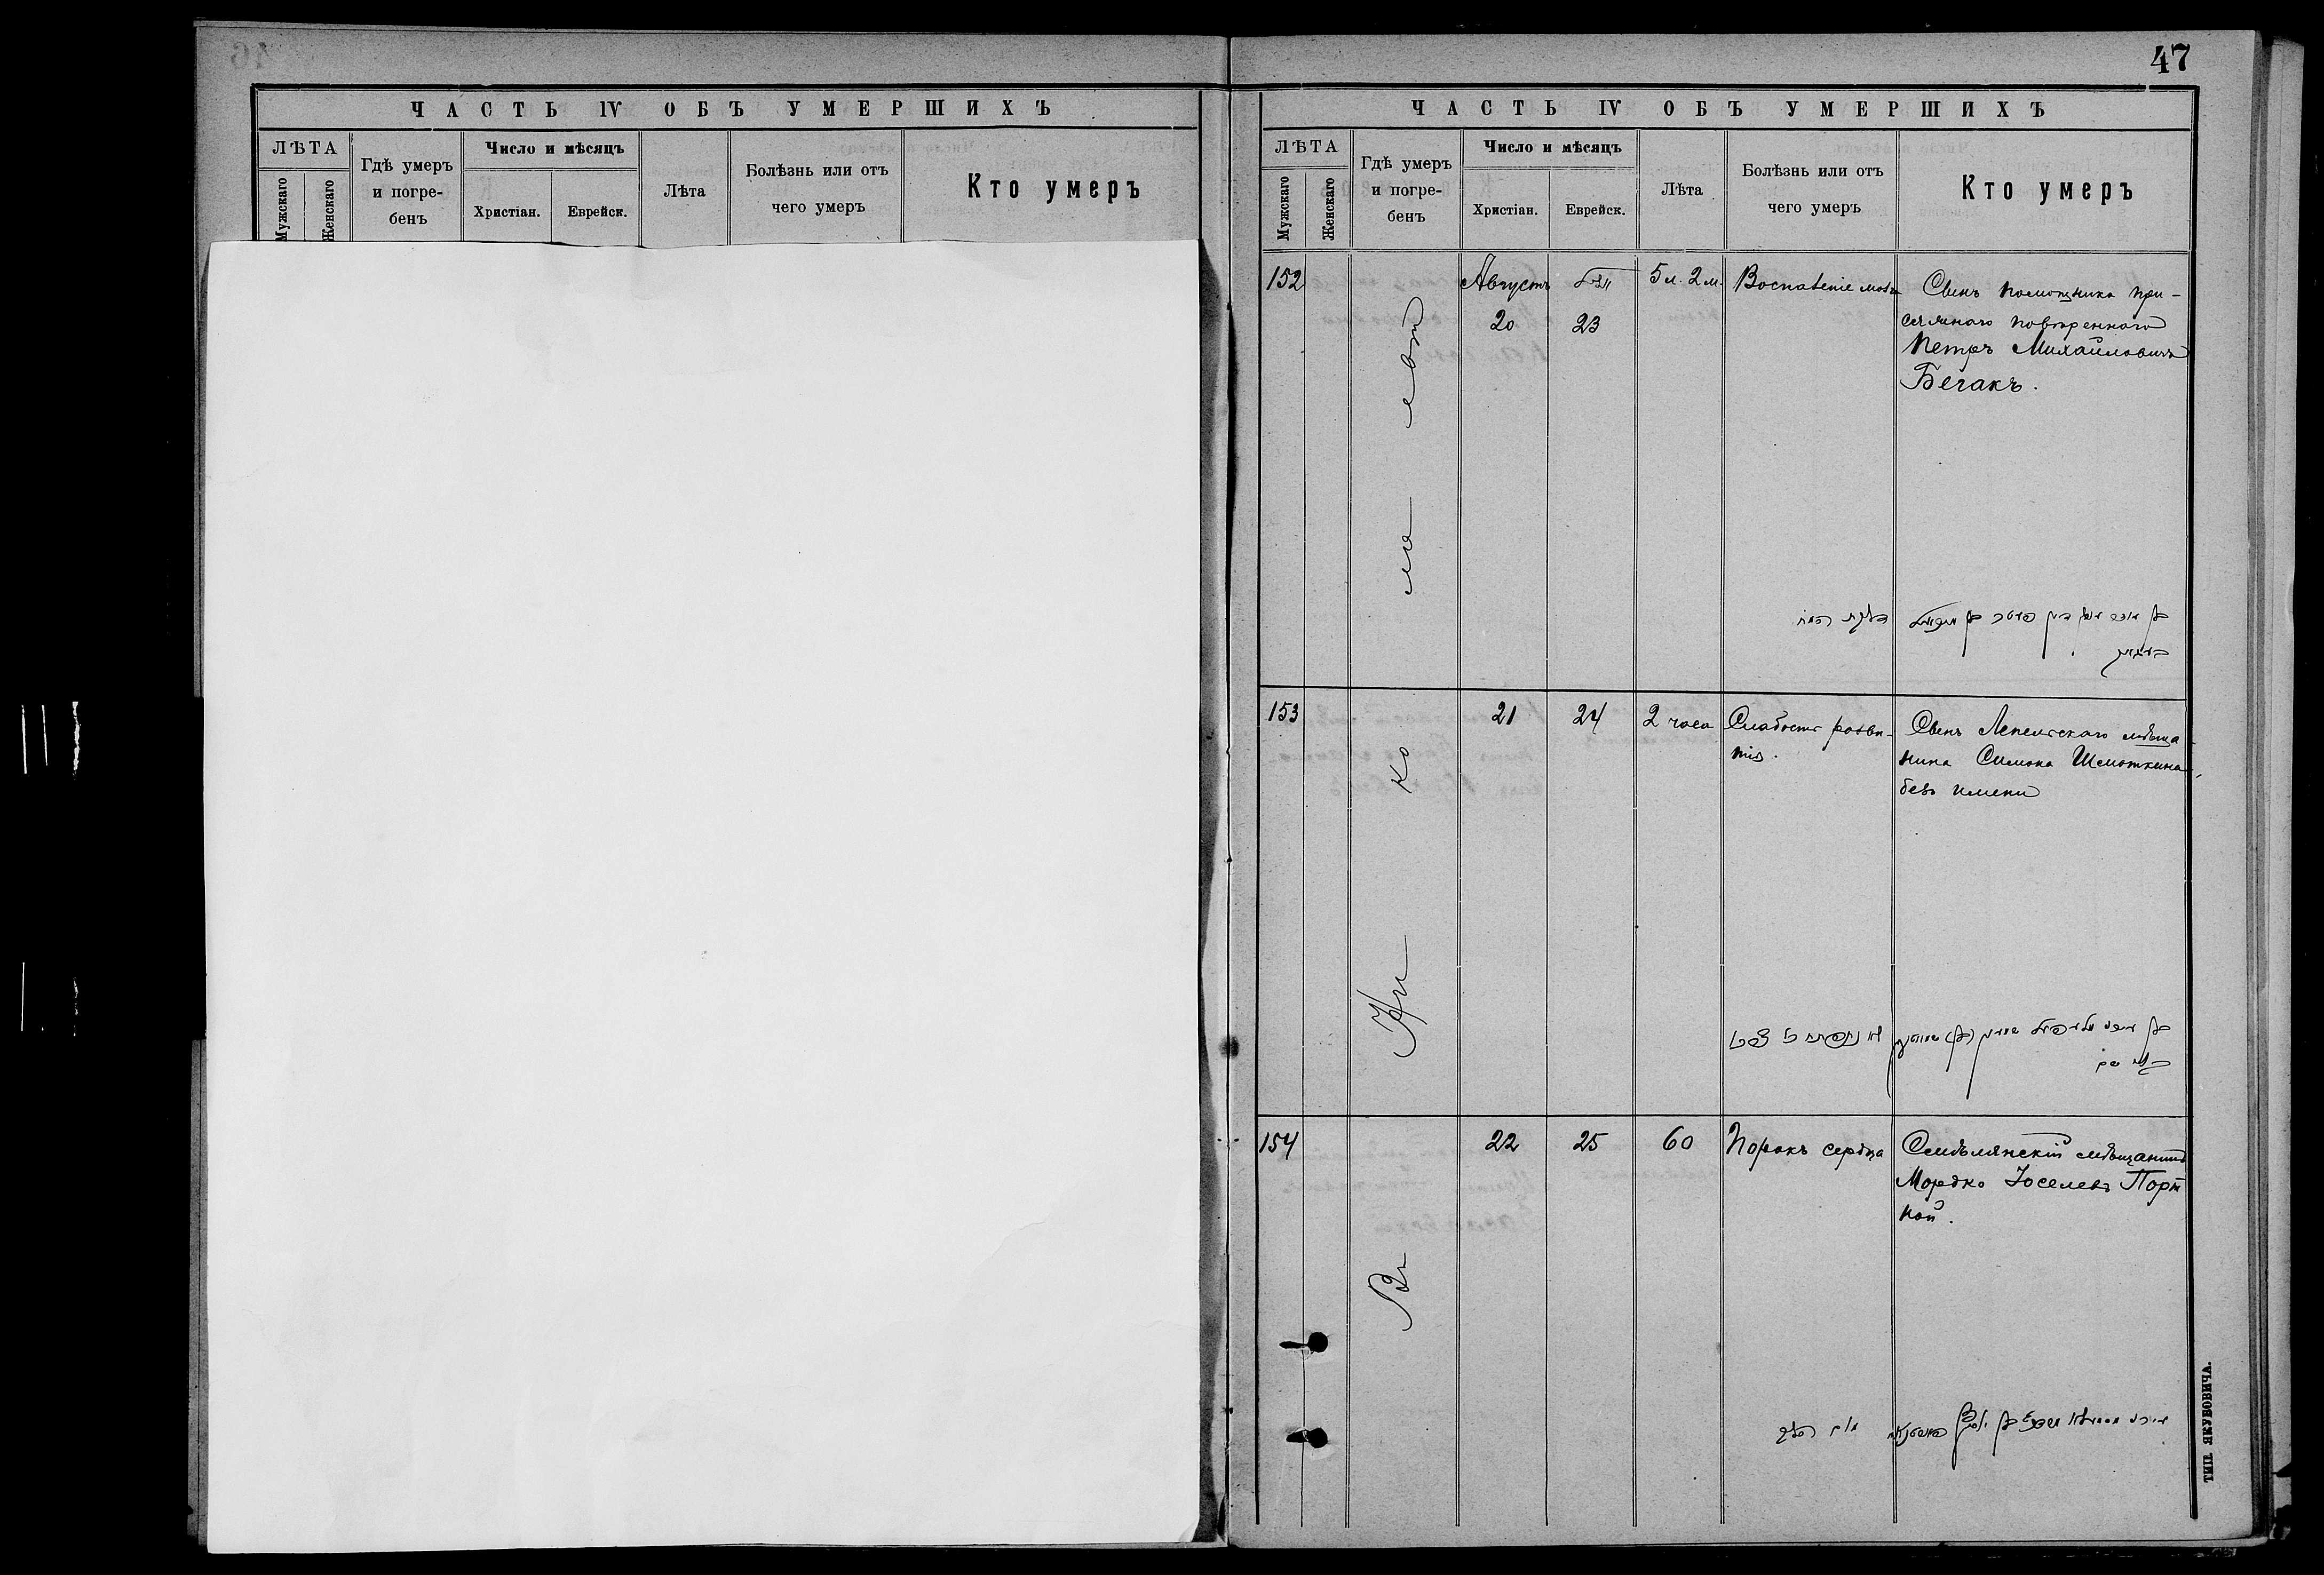 47
ЧАСТЬ IV ОБЪ УМЕРШИХЪ
ЛѢТА
Мужскаго
Женскаго
Гдѣ умеръ
и погре-
бенъ
Число и мѣсяцъ
Христіан.
Еврейск.
Лѣта
Болѣзнь или отъ
чего умеръ
Кто умеръ
ЧАСТЬ IV ОБЪ УМЕРШИХЪ
ЛѢТА
Мужскаго
Женскаго
Гдѣ умеръ
и погре-
бенъ
Число и мѣсяцъ
Христіан.
Еврейск.
Лѣта
Болѣзнь или отъ
чего умеръ
Кто умеръ
Въ Ни ко ла евѣ
152
Августъ
20
23
5 л. 2 м.
Воспаленіе мозга
Сынъ помощника при-
сяжнаго повѣреннаго
Петръ Михайловичъ
Бечакъ.
153
21
24
2 часа
Слабость разви-
тія.
Сынъ Лепельскаго мѣща
нина Симона Шмоткина,
безъ имени
154
22
25
60
Порокъ сердца
Смѣлянскій мѣщанинъ
Мордко Іоселевъ Порт
ной.
ТИП. ЯКУБОВИЧА.